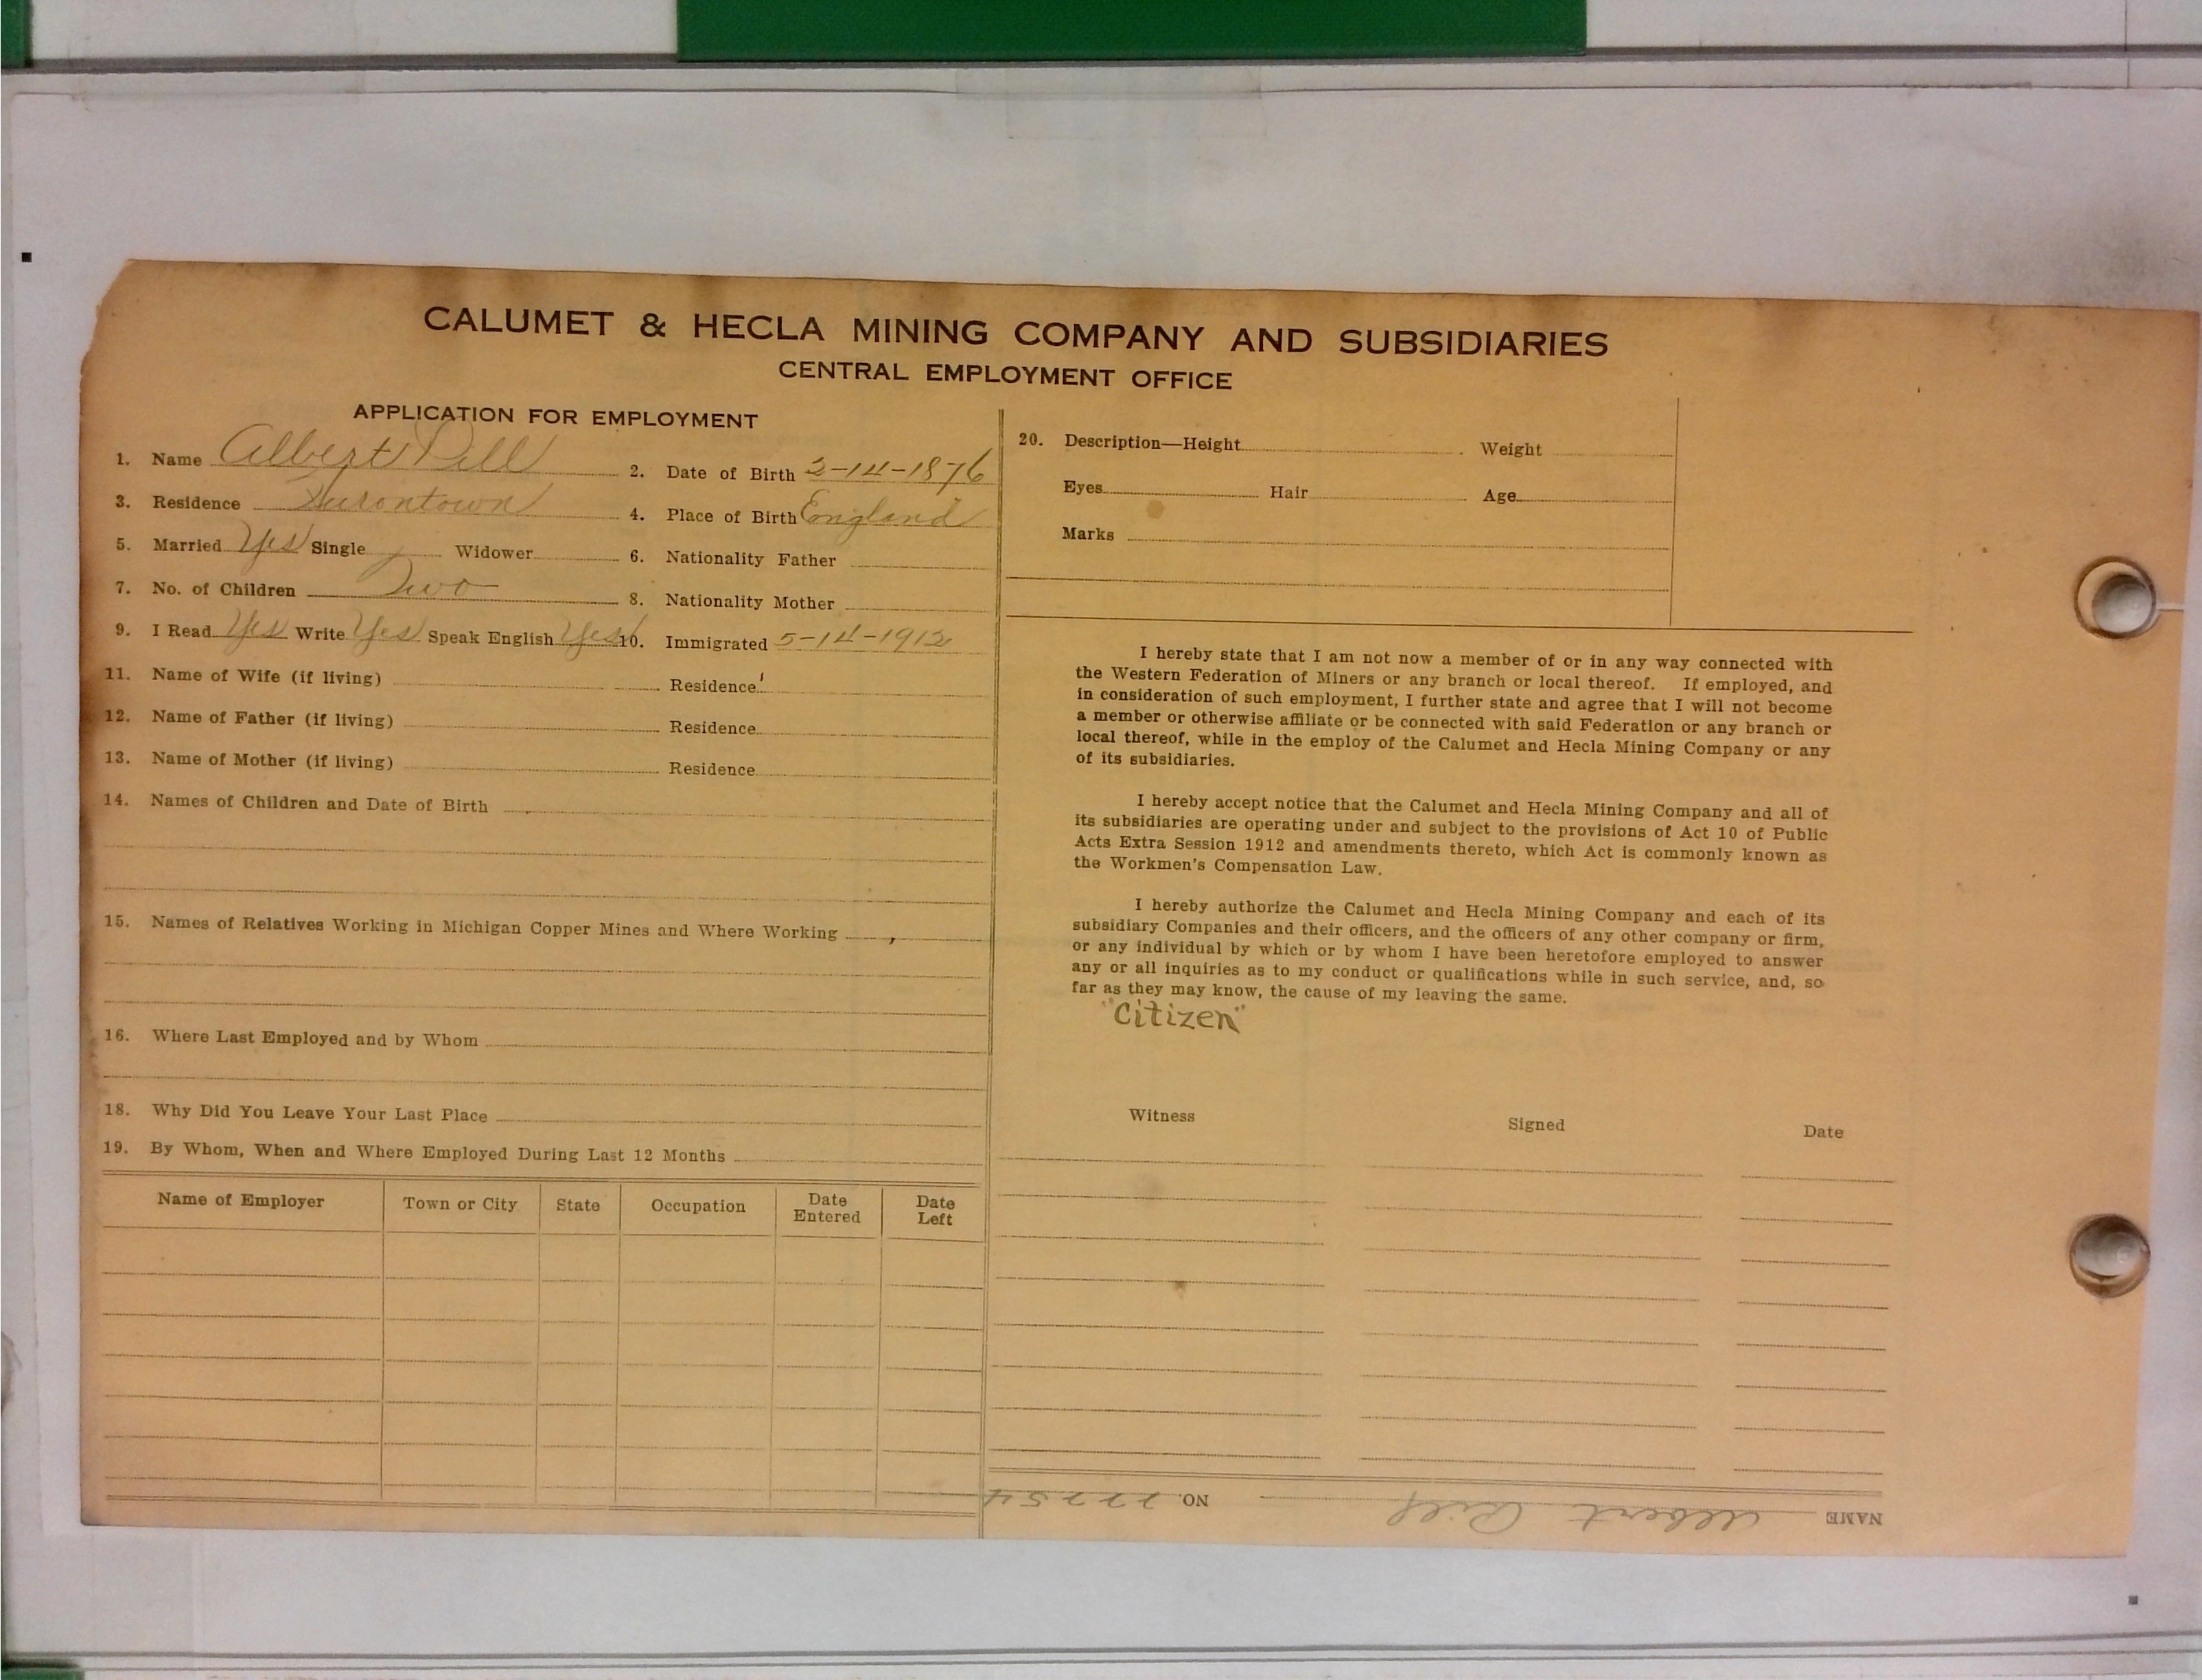 CALUMET & HECLA MINING COMPANY AND SUBSIDIARIES
CENTRAL EMPLOYMENT OFFICE
APPLICATION FOR EMPLOYMENT
1. Name Albert Pill 2. Date of Birth 2-14-1876
3. Residence Hurontown 4. Place of Birth England
5. Married Yes Single Widower 6. Nationality Father
7. No. of Children Two 8. Nationality Mother
9. I Read Yes Write Yes Speak English Yes 10. Immigrated 5-14-1912
11. Name of Wife (if living) Residence
12. Name of Father (if living) Residence
13. Name of Mother (if living) Residence
14. Names of Children and Date of Birth
15. Names of Relatives Working in Michigan Copper Mines and Where Working
16. Where Last Employed and by Whom
18. Why Did You Leave Your Last Place
19. By Whom, When and Where Employed During Last 12 Months
Name of Employer Town or City State Occupation Date Entered Date Left
20. Description—Height Weight
Eyes Hair Age
Marks
I hereby state that I am not now a member of or in any way connected with
the Western Federation of Miners or any branch or local thereof. If employed, and
in consideration of such employment, I further state and agree that I will not become
a member or otherwise affiliate or be connected with said Federation or any branch or
local thereof, while in the employ of the Calumet and Hecla Mining Company or any
of its subsidiaries.
I hereby accept notice that the Calumet and Hecla Mining Company and all of
its subsidiaries are operating under and subject to the provisions of Act 10 of Public
Acts Extra Session 1912 and amendments thereto, which Act is commonly known as
the Workmen's Compensation Law.
I hereby authorize the Calumet and Hecla Mining Company and each of its
subsidiary Companies and their officers, and the officers of any other company or firm,
or any individual by which or by whom I have been heretofore employed to answer
any or all inquiries as to my conduct or qualifications while in such service, and, so
far as they may know, the cause of my leaving the same.
"Citizen"
Witness Signed Date
NAME Albert Pill NO. 22254